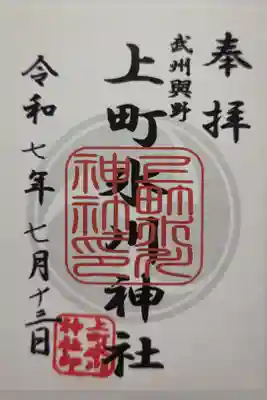 奉拝
武州與野
上町氷川神社
令和七年七月十三日
上町氷川神社印